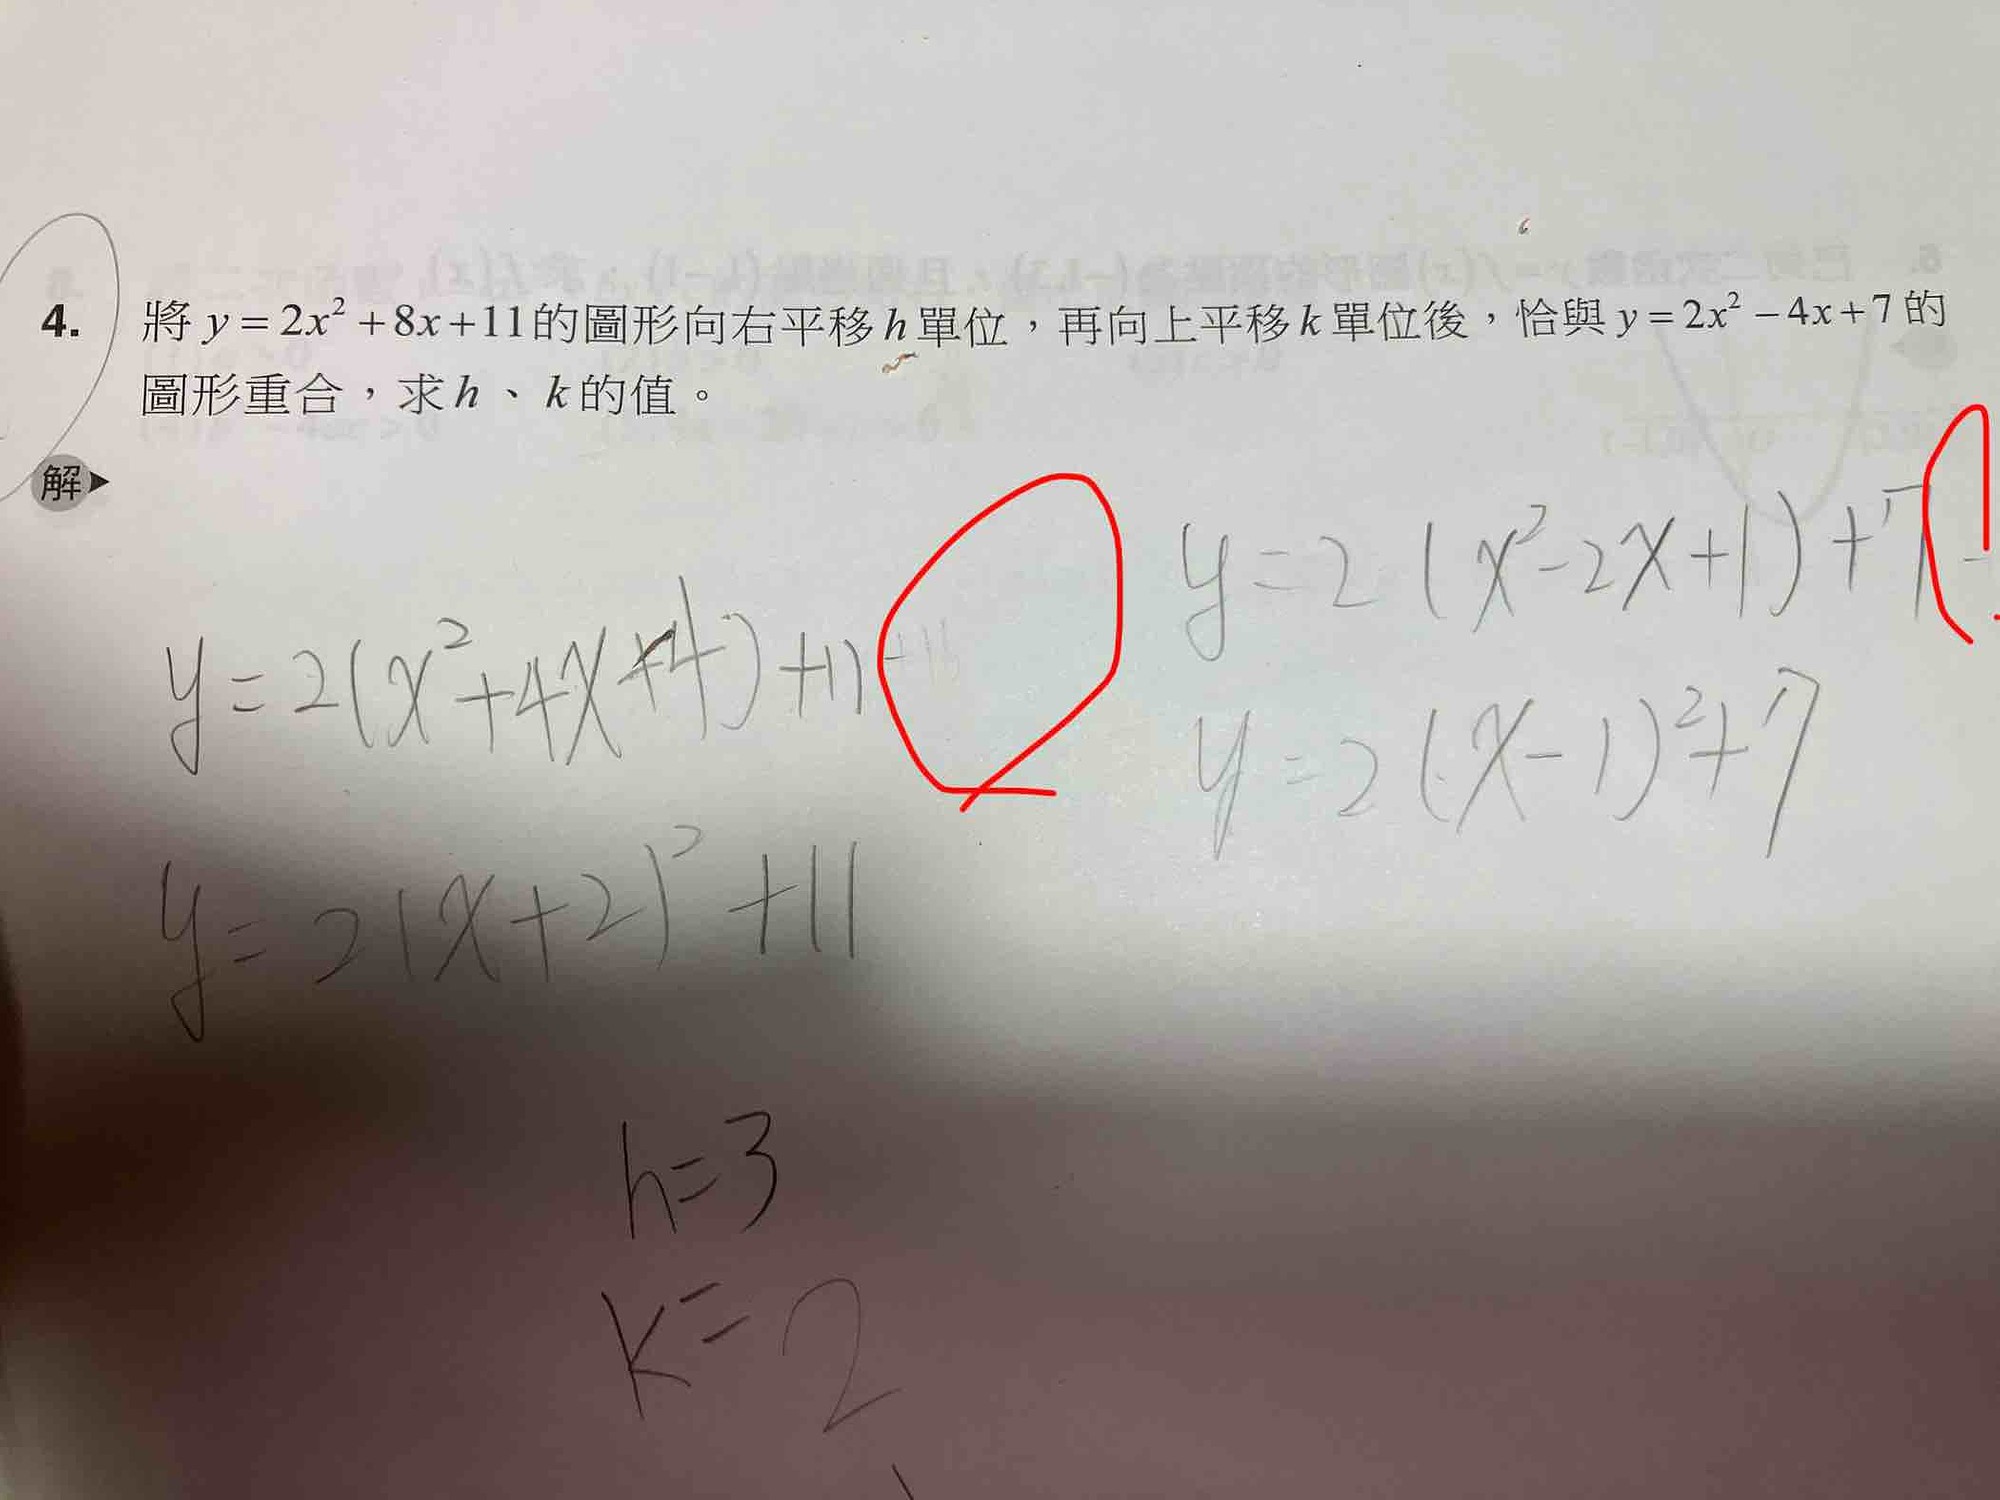 4. 將 y = 2x² + 8x + 11 的圖形向右平移 h 單位，再向上平移 k 單位後，恰與 y = 2x² − 4x + 7 的
圖形重合，求 h、k 的值。
解
y = 2(x² + 4x + 4) + 11
y = 2(x + 2)² + 11
y = 2(x² - 2x + 1) + 7
y = 2(x - 1)² + 7
h = 3
k = 2